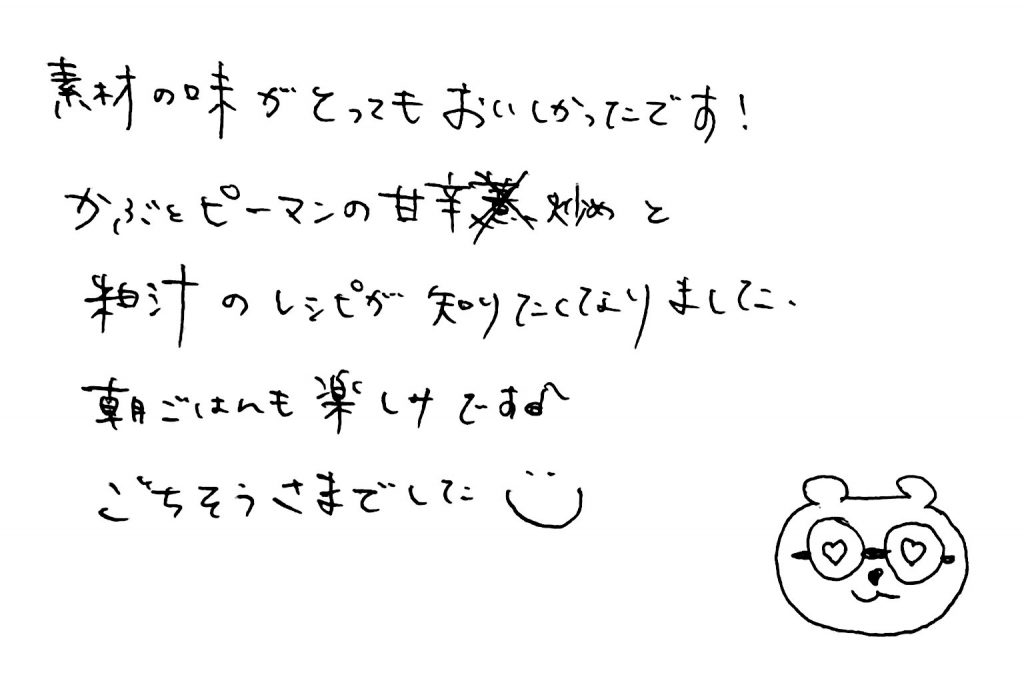 素材の味がとってもおいしかったです!
かぶとピーマンの甘辛炒めと
粕汁のレシピが知りたくなりました.
朝ごはんも楽しみです♪
ごちそうさまでした